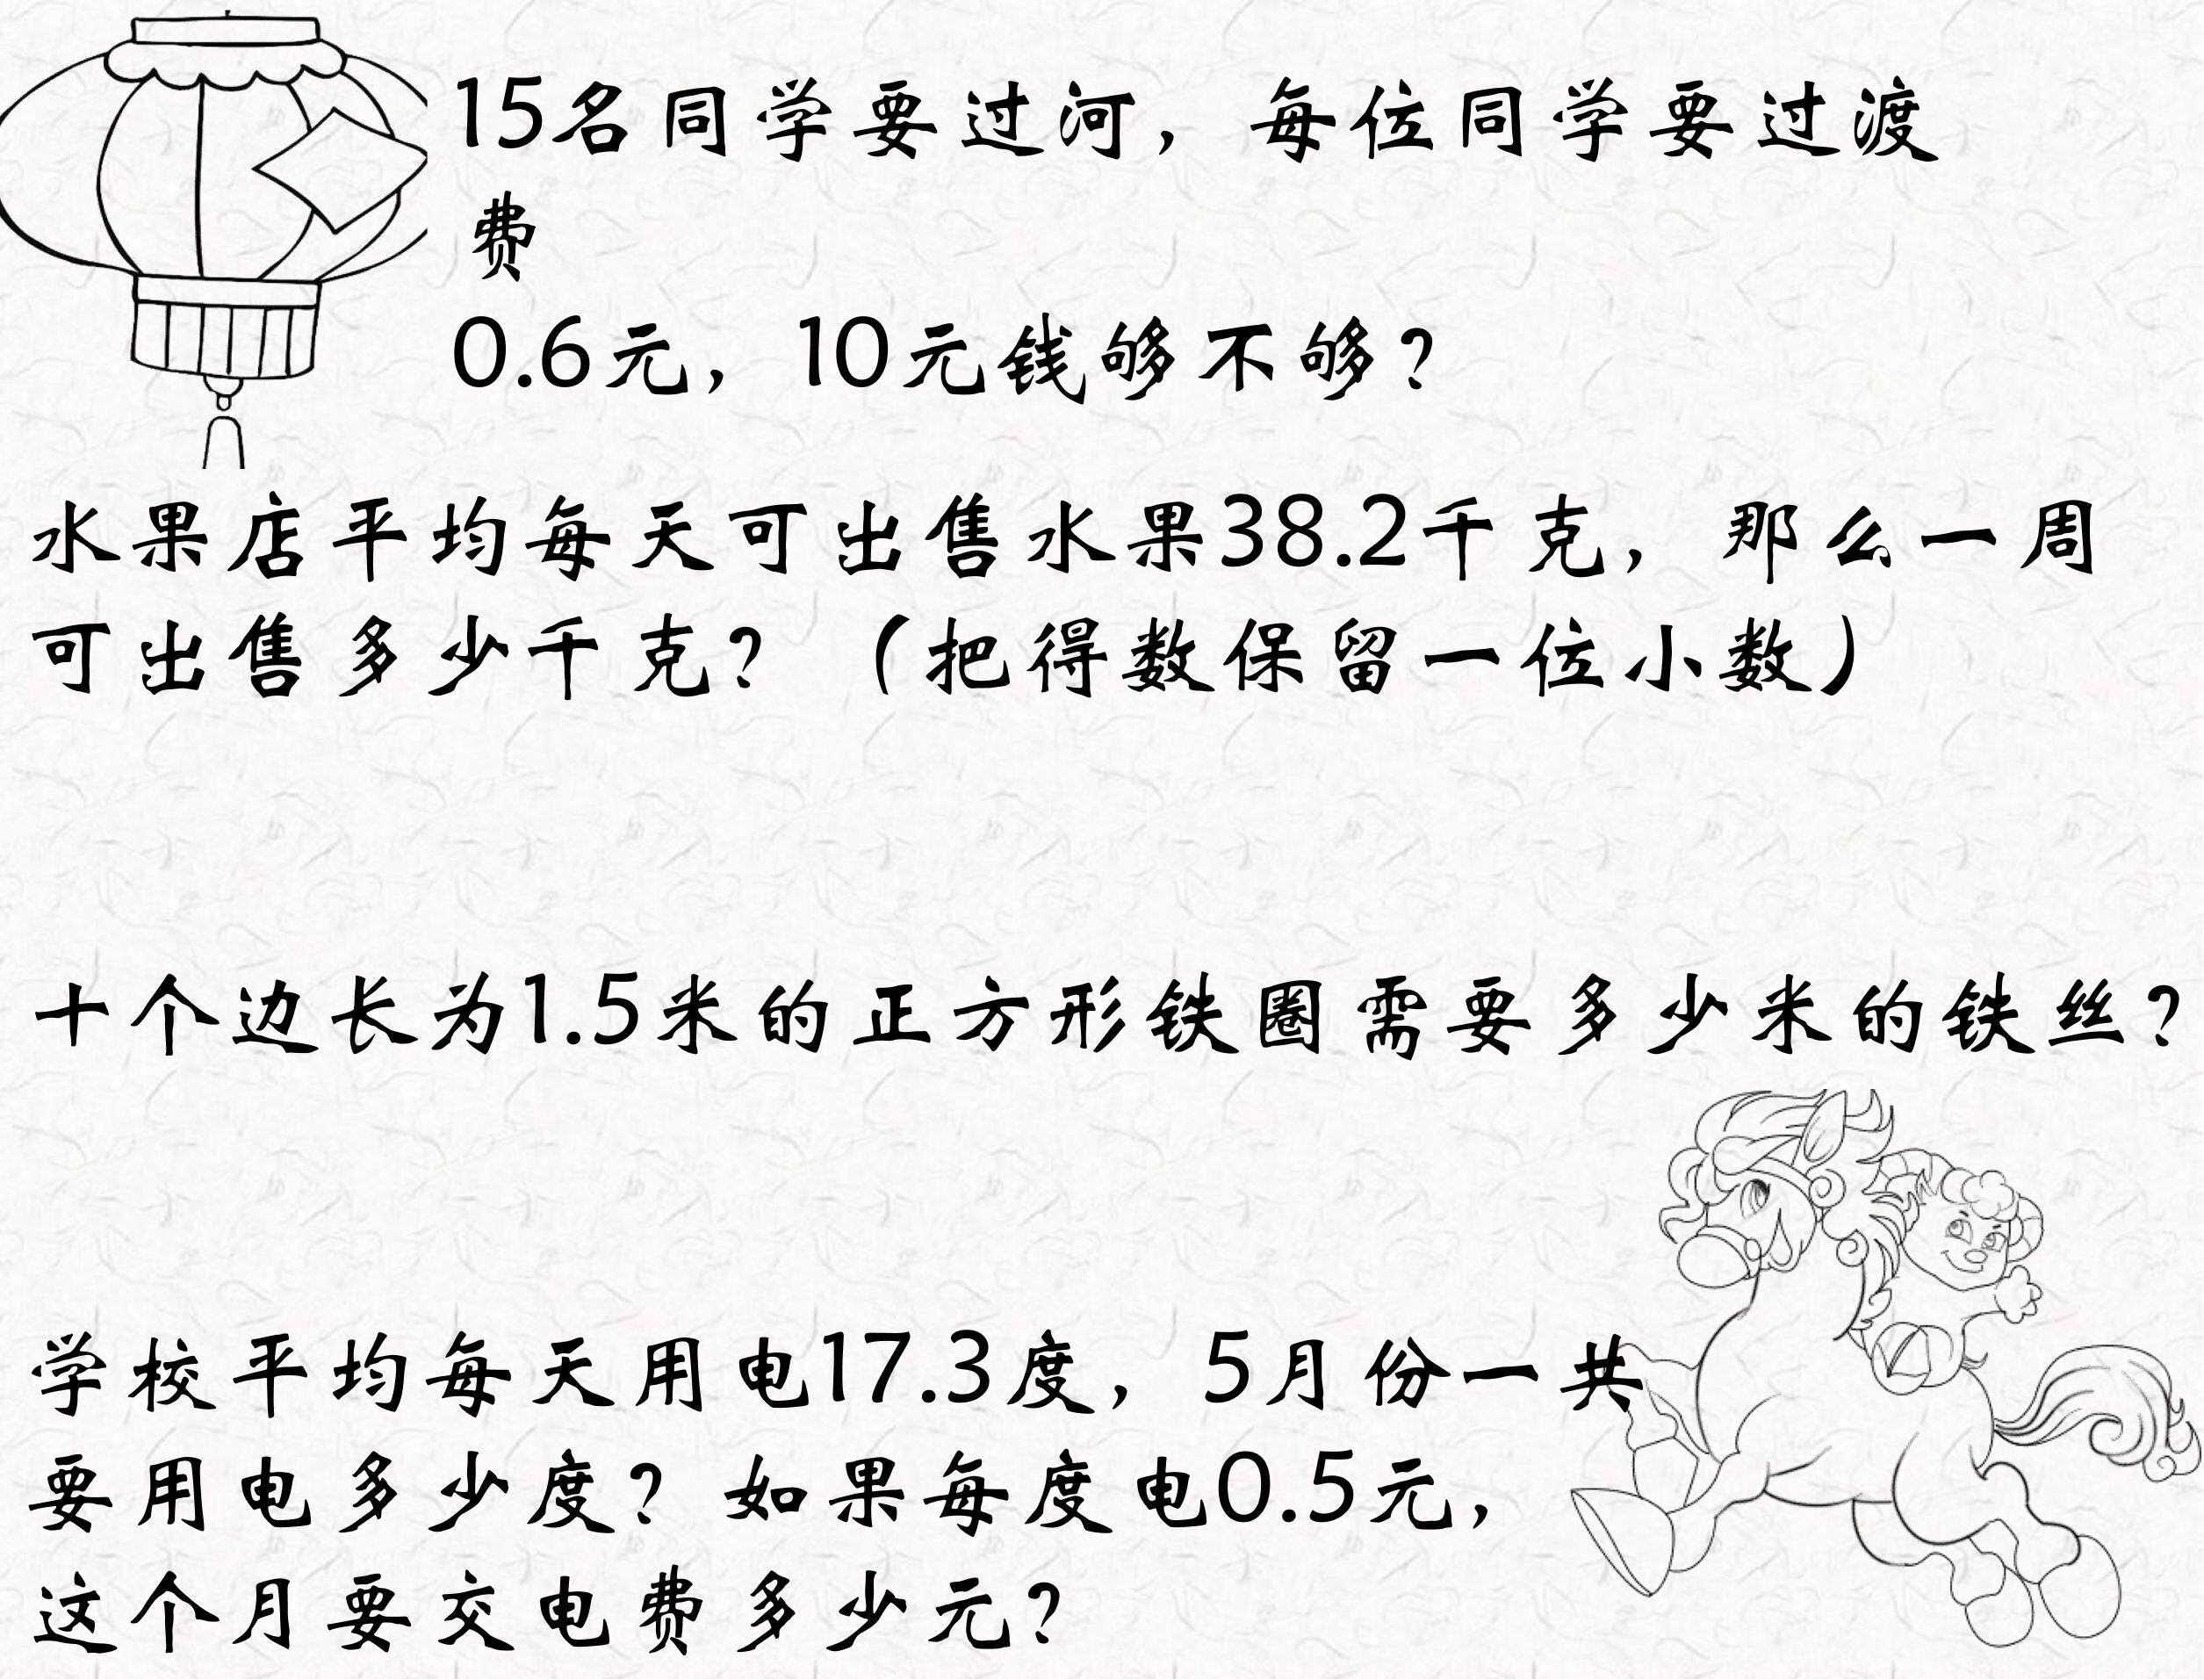 15名同学要过河，每位同学要过渡
费
0.6元，10元钱够不够？
水果店平均每天可出售水果38.2千克，那么一周
可出售多少千克？（把得数保留一位小数）
十个边长为1.5米的正方形铁圈需要多少米的铁丝？
学校平均每天用电17.3度，5月份一共
要用电多少度？如果每度电0.5元，
这个月要交电费多少元？